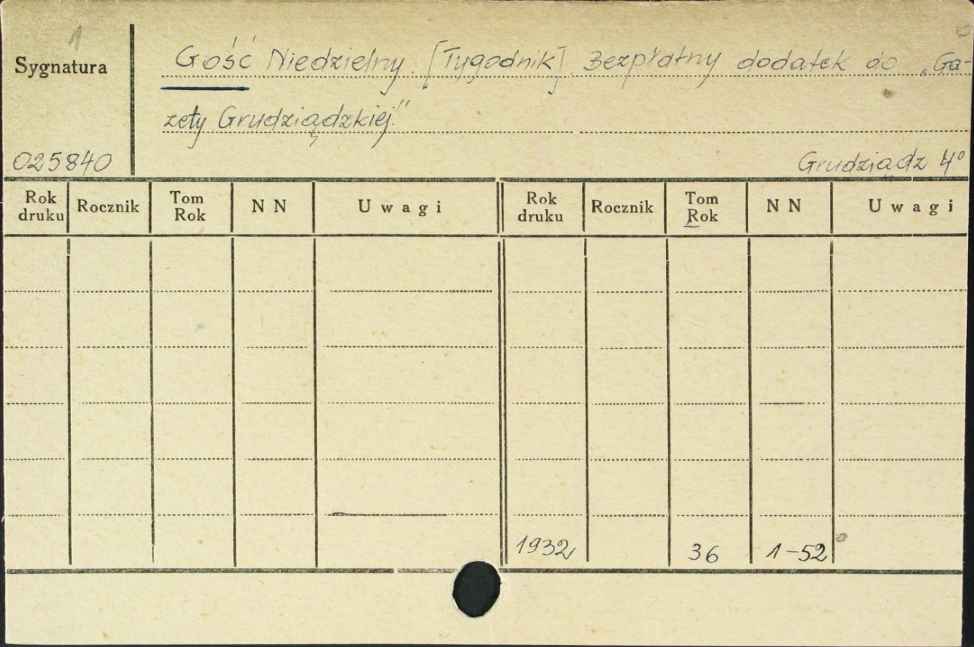 1
Sygnatura
Gość Niedzielny. [Tygodnik]. Bezpłatny dodatek do „Ga-
zety Grudziądzkiej”
025840
Grudziądz 4°
Rok druku Rocznik Tom Rok N N Uwagi Rok druku Rocznik Tom Rok N N Uwagi
1932 36 1-52